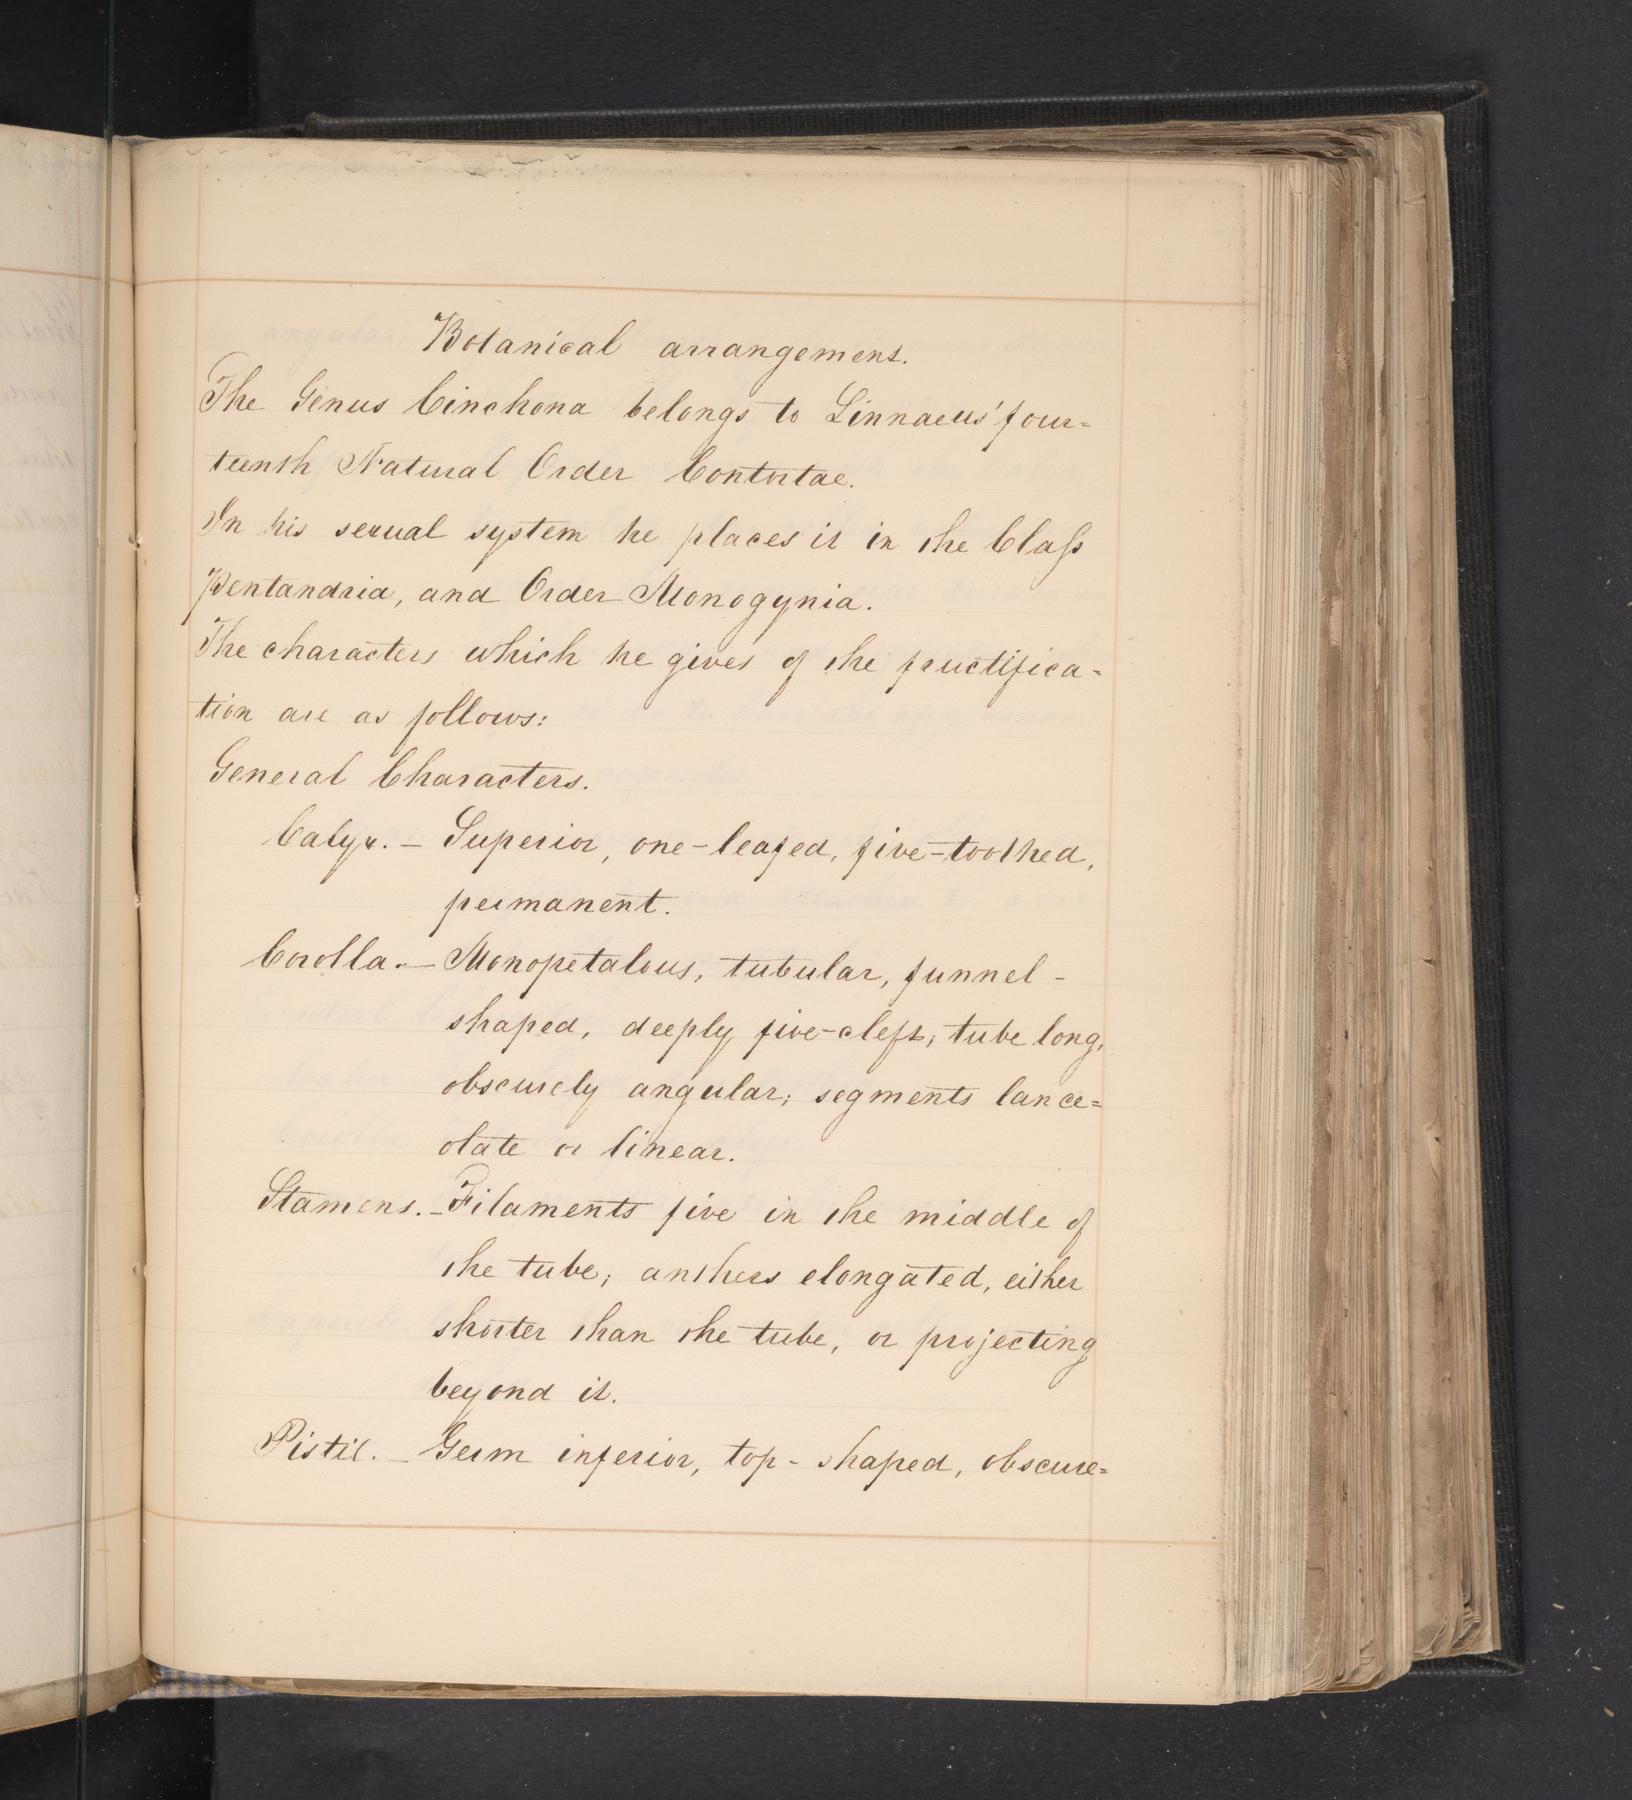 Botanical arrangement.
The Genus Cinchona belongs to Linnaeus' four=
teenth Natural Order Contortae.
In his sexual system he places it in the Claſs
Pentandria, and Order Monogynia.
The characters which he gives of the fructifica-
tion are as follows:
General Characters.
Calyx. - Superior, one-leafed, five-toothed,
permanent.
Corolla. - Monopetalous, tubular, funnel-
shaped, deeply five-cleft; tube long,
obscurely angular; segments lance=
olate or linear.
Stamens. - Filaments five in the middle of
the tube; anthers elongated, either
shorter than the tube, or projecting
beyond it.
Pistil. - Germ inferior, top-shaped, obscure=